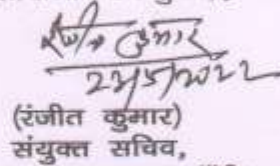 रंजीत कुमार
24/5/2022
(रंजीत कुमार)
संयुक्त सचिव,